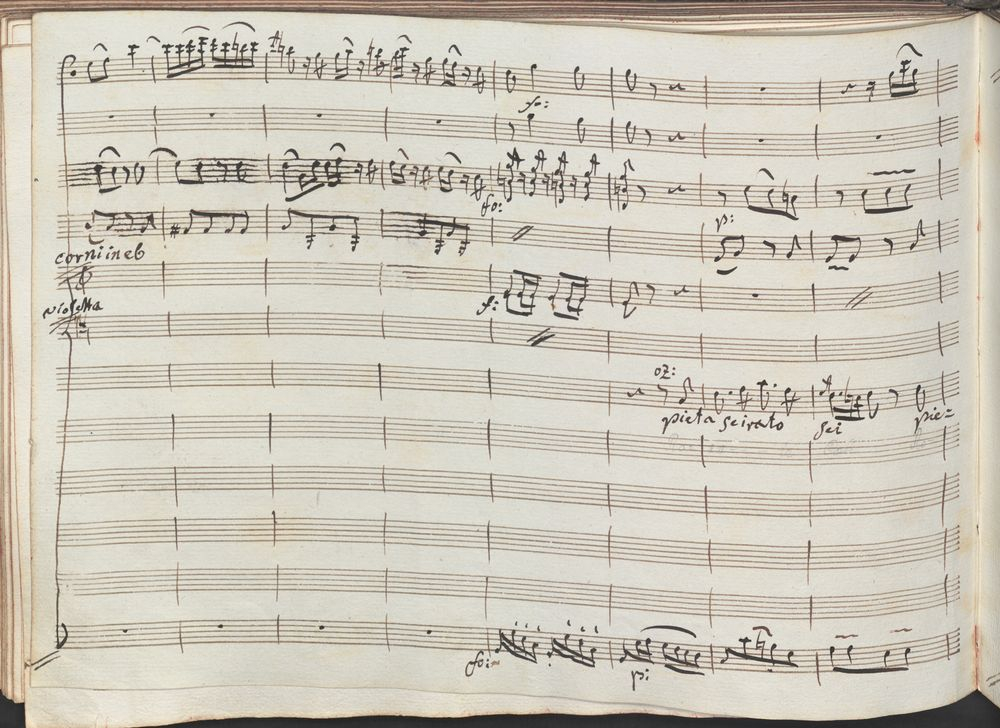 fo:
fo:
p:
corni in eb
f:
violetta
oz:
pieta sei rato sei pie=
fo:
p: